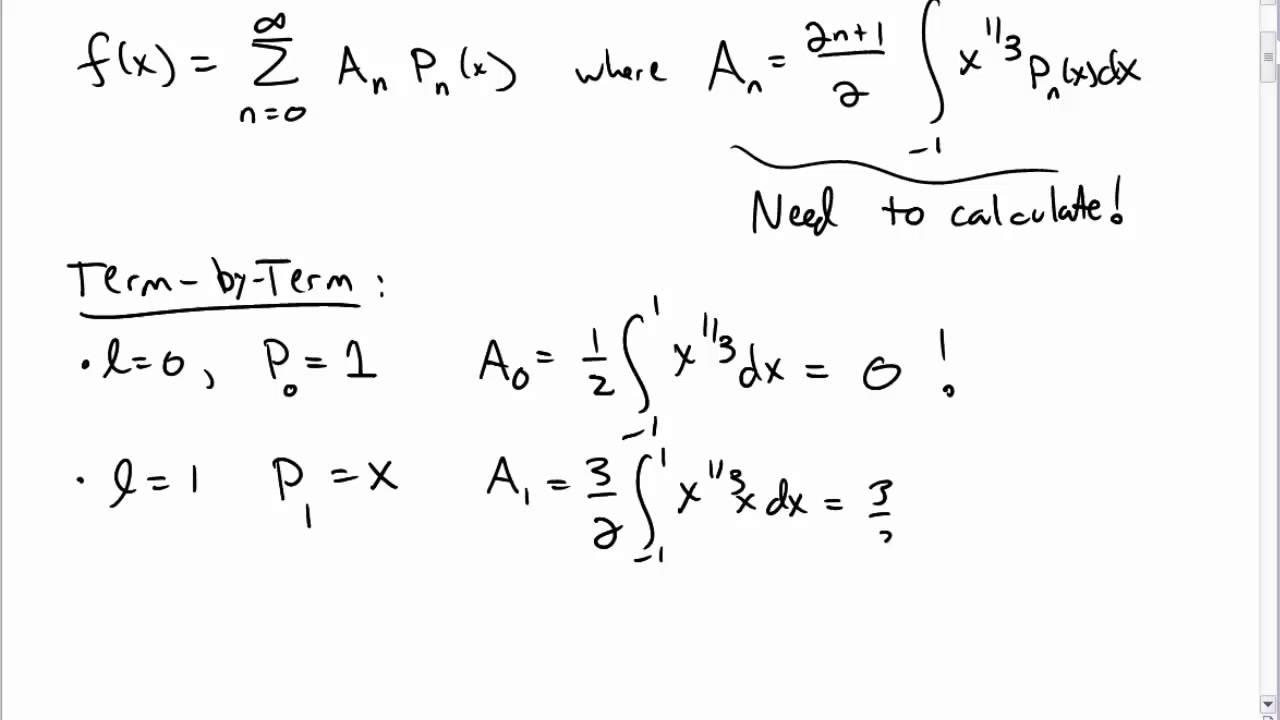 f(x) = ∞ Σ n=0 A_n P_n(x) where A_n = 2n+1/2 ∫_-1 x^1/3 P_n(x)dx
Need to calculate!
Term-by-Term:
• l=0, P_0 = 1 A_0 = 1/2 ∫_-1^1 x^1/3 dx = 0 !
• l=1 P_1 = x A_1 = 3/2 ∫_-1^1 x^1/3 x dx = 3